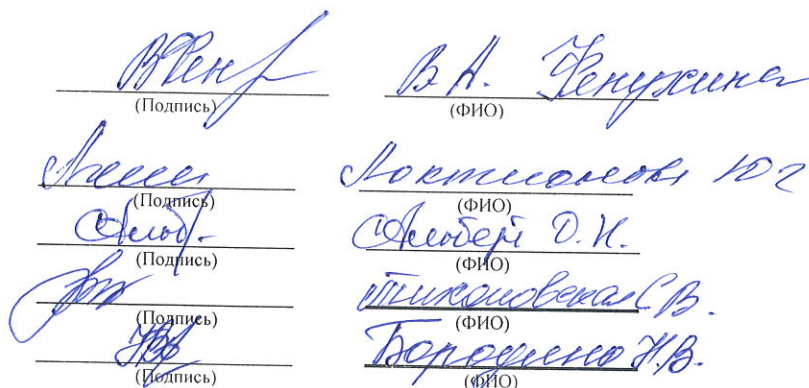 ВФен В.А. Фенухина
(Подпись) (ФИО)
Локтионова Ю Г
(Подпись) (ФИО)
Альб. Альберт О.Н.
(Подпись) (ФИО)
Тихоновская С.В.
(Подпись) (ФИО)
Бородина Н.В.
(Подпись) (ФИО)